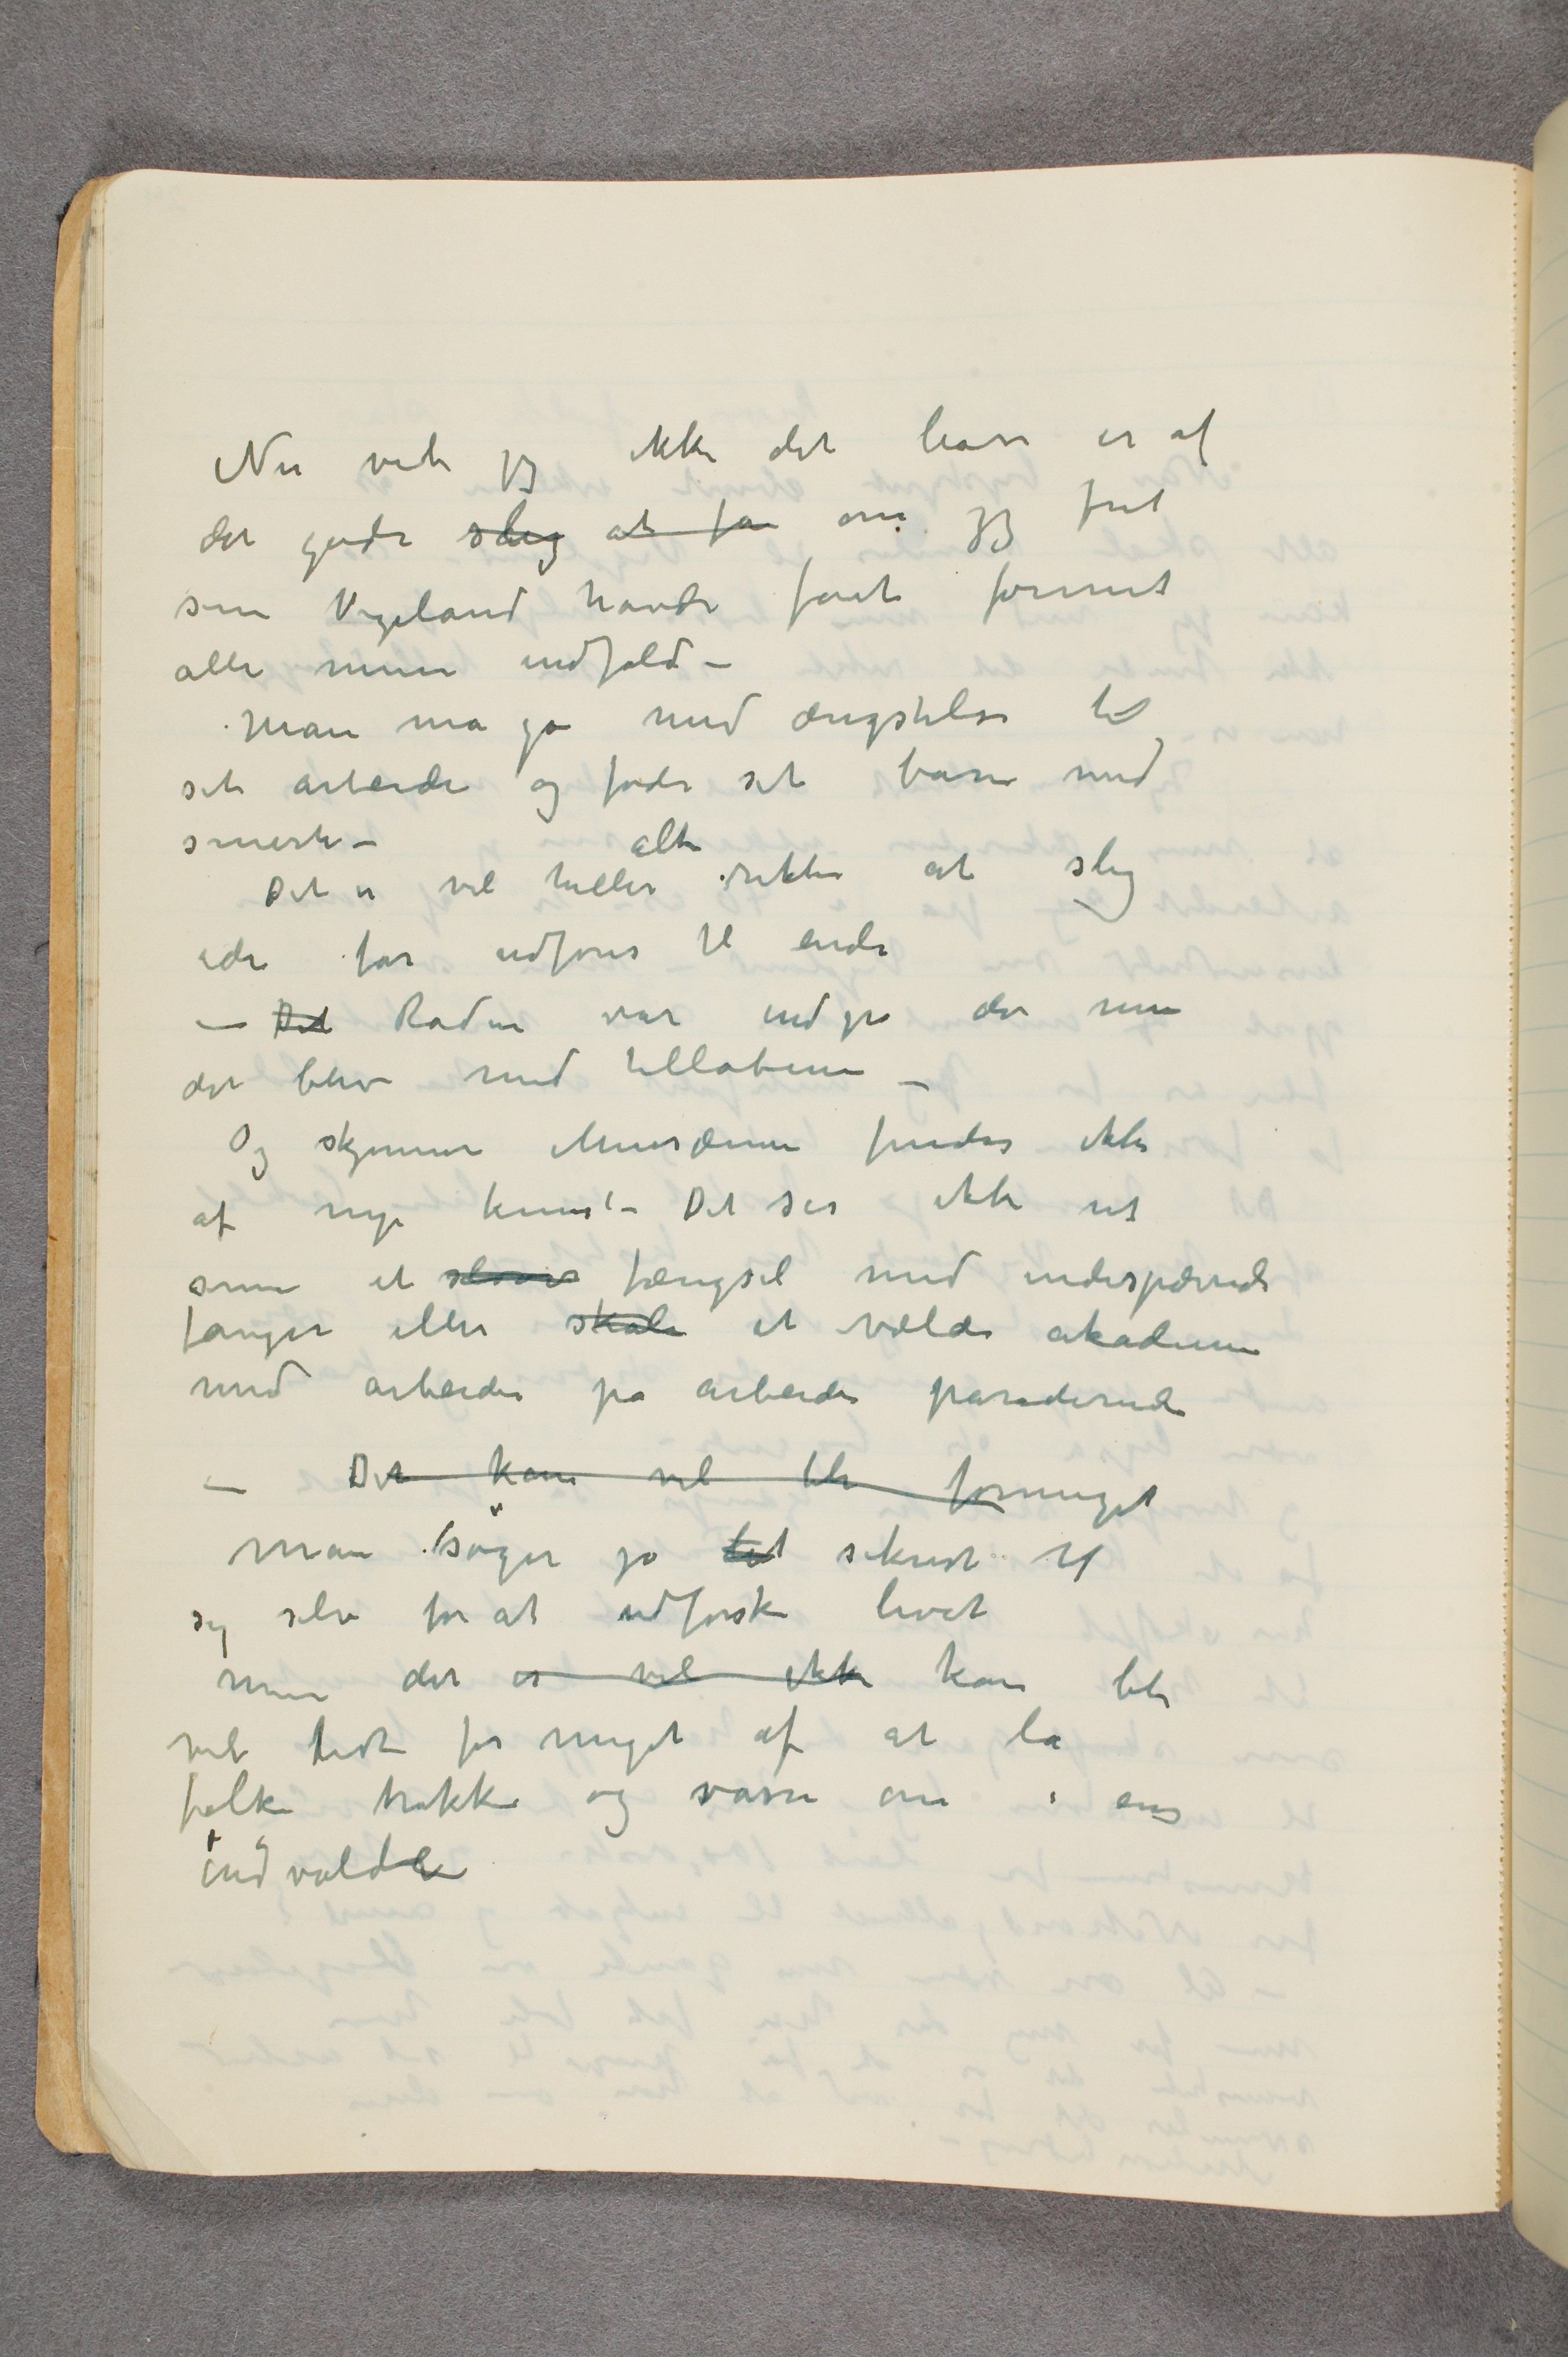 Nu ved jeg ikke det bare er af
det gode slig at få om jeg frit
som Vigeland havde fåt formet
alle mine indfald –
Man må gå med ængstelse til
sit arbeide og føde sit barn med
smerte –
Det er vel heller ikke altid at slig
ide får udføres til ende
– Det Rodin var indgå der men
det blev med tilløbene –
Og skjønner Musæene findes ikke
af nye kunst – Det ser ikke ut
som et fængsel med indespærrede
fanger eller skole et vælde akademi
med arbeider på arbeide paraderende
– Det kan vel bli formeget
Man søger jo tit sikrest til
sig selv for at udforske livet
men det er vel ikke kan bli
vel tidt for meget af at la
folk trakke og vasse om i ens
indvolde